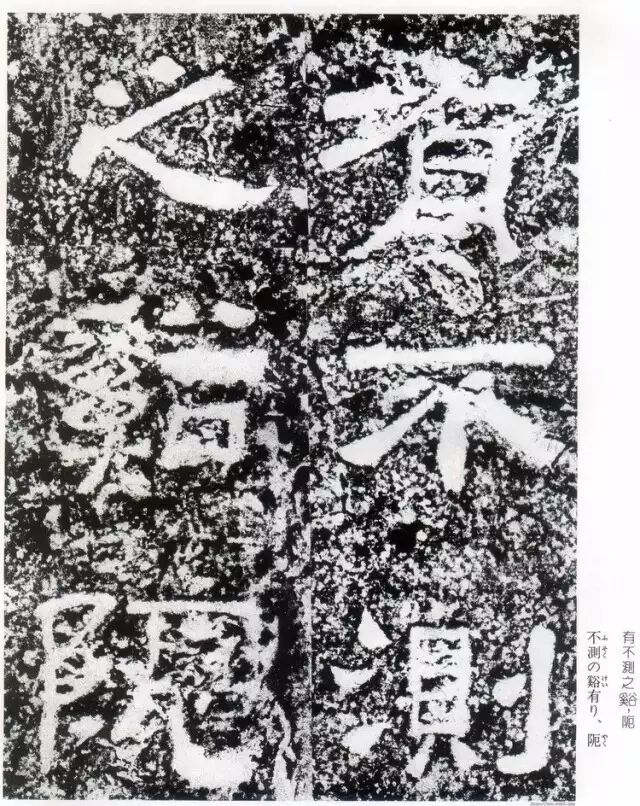 有不測之谿，阨
不測の谿有り、阨
有不測
之谿阨